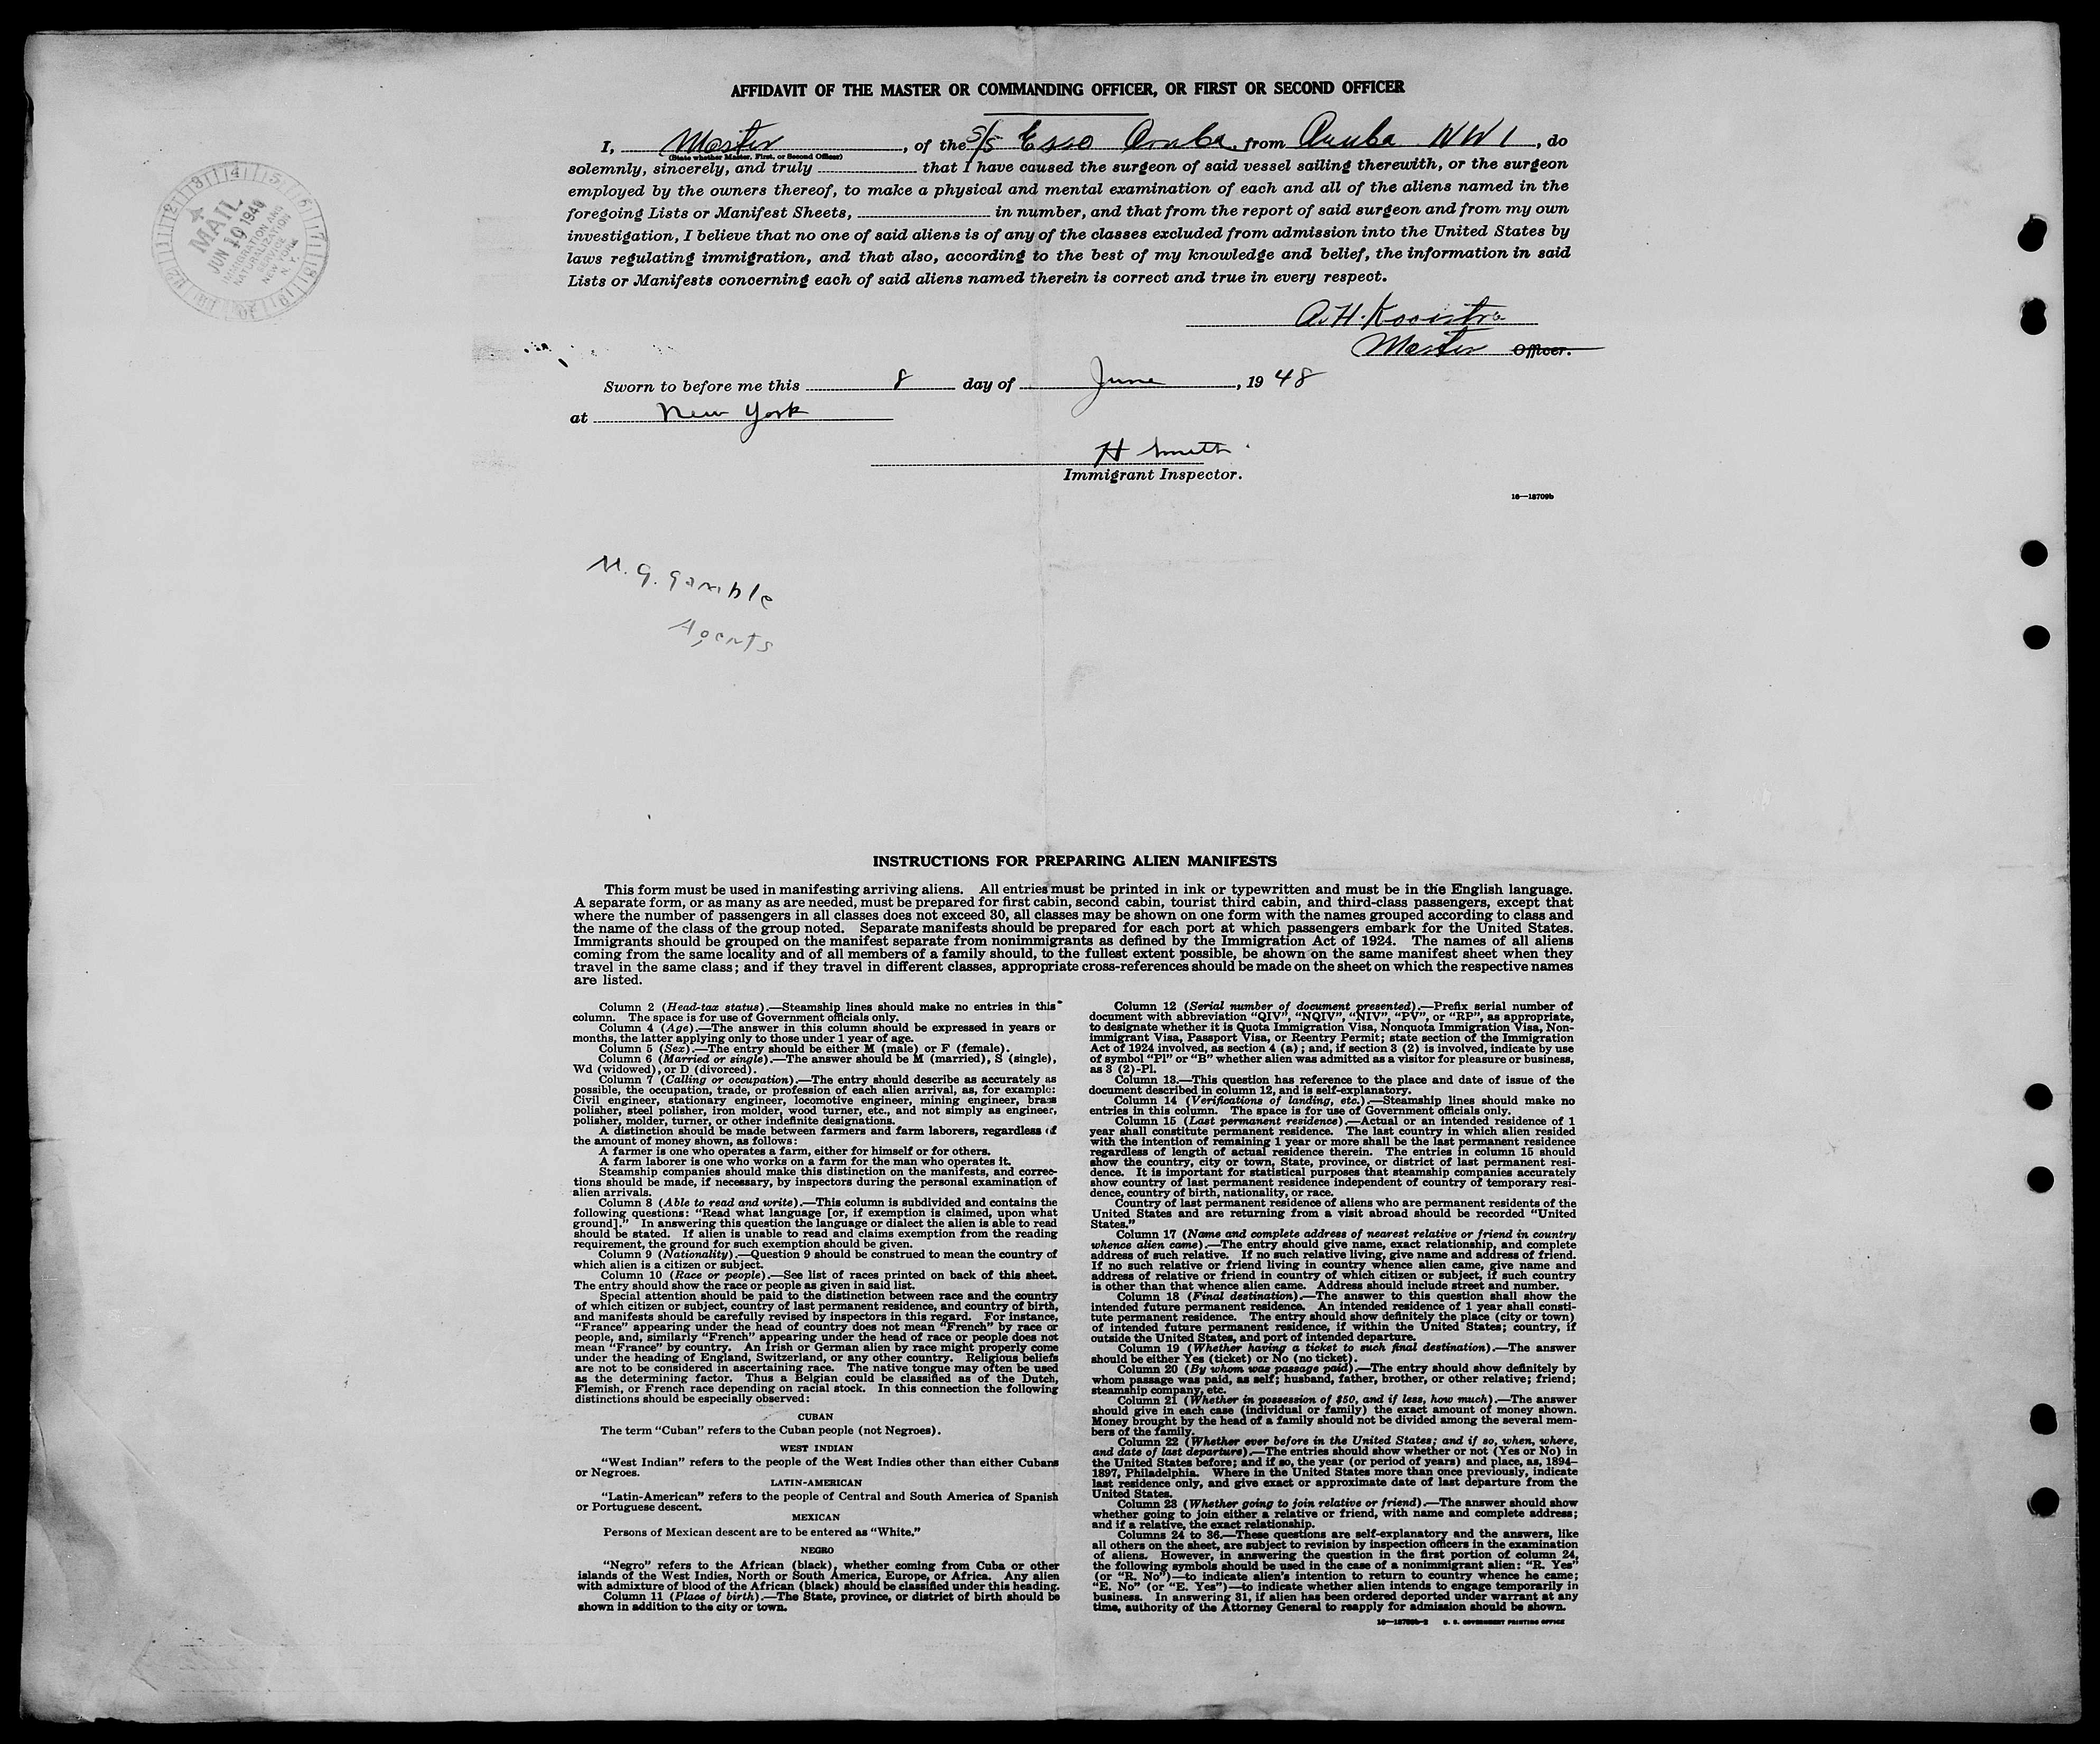 AFFIDAVIT OF THE MASTER OR COMMANDING OFFICER, OR FIRST OR SECOND OFFICER
I, Master, of the S/S Esso Aruba, from Aruba NWI, do
(State whether Master, First, or Second Officer)
solemnly, sincerely, and truly that I have caused the surgeon of said vessel sailing therewith, or the surgeon
employed by the owners thereof, to make a physical and mental examination of each and all of the aliens named in the
foregoing Lists or Manifest Sheets, in number, and that from the report of said surgeon and from my own
investigation, I believe that no one of said aliens is of any of the classes excluded from admission into the United States by
laws regulating immigration, and that also, according to the best of my knowledge and belief, the information in said
Lists or Manifests concerning each of said aliens named therein is correct and true in every respect.
MAIL
JUN 19 194
IMMIGRATION AND
NATURALIZATION
SERVICE
NEW YORK
N. Y.
A. H. Kooistra
Master Officer.
Sworn to before me this 8 day of June, 19 48
at New York
H Smith
Immigrant Inspector.
16—18709b
M. G. Gamble
Agents
INSTRUCTIONS FOR PREPARING ALIEN MANIFESTS
This form must be used in manifesting arriving aliens. All entries must be printed in ink or typewritten and must be in the English language.
A separate form, or as many as are needed, must be prepared for first cabin, second cabin, tourist third cabin, and third-class passengers, except that
where the number of passengers in all classes does not exceed 30, all classes may be shown on one form with the names grouped according to class and
the name of the class of the group noted. Separate manifests should be prepared for each port at which passengers embark for the United States.
Immigrants should be grouped on the manifest separate from nonimmigrants as defined by the Immigration Act of 1924. The names of all aliens
coming from the same locality and of all members of a family should, to the fullest extent possible, be shown on the same manifest sheet when they
travel in the same class; and if they travel in different classes, appropriate cross-references should be made on the sheet on which the respective names
are listed.
Column 2 (Head-tax status).—Steamship lines should make no entries in this
column. The space is for use of Government officials only.
Column 4 (Age).—The answer in this column should be expressed in years or
months, the latter applying only to those under 1 year of age.
Column 5 (Sex).—The entry should be either M (male) or F (female).
Column 6 (Married or single).—The answer should be M (married), S (single),
Wd (widowed), or D (divorced).
Column 7 (Calling or occupation).—The entry should describe as accurately as
possible, the occupation, trade, or profession of each alien arrival, as, for example:
Civil engineer, stationary engineer, locomotive engineer, mining engineer, brass
polisher, steel polisher, iron molder, wood turner, etc., and not simply as engineer,
polisher, molder, turner, or other indefinite designations.
A distinction should be made between farmers and farm laborers, regardless of
the amount of money shown, as follows:
A farmer is one who operates a farm, either for himself or for others.
A farm laborer is one who works on a farm for the man who operates it.
Steamship companies should make this distinction on the manifests, and correc-
tions should be made, if necessary, by inspectors during the personal examination of
alien arrivals.
Column 8 (Able to read and write).—This column is subdivided and contains the
following questions: "Read what language [or, if exemption is claimed, upon what
ground]." In answering this question the language or dialect the alien is able to read
should be stated. If alien is unable to read and claims exemption from the reading
requirement, the ground for such exemption should be given.
Column 9 (Nationality).—Question 9 should be construed to mean the country of
which alien is a citizen or subject.
Column 10 (Race or people).—See list of races printed on back of this sheet.
The entry should show the race or people as given in said list.
Special attention should be paid to the distinction between race and the country
of which citizen or subject, country of last permanent residence, and country of birth,
and manifests should be carefully revised by inspectors in this regard. For instance,
"France" appearing under the head of country does not mean "French" by race or
people, and, similarly "French" appearing under the head of race or people does not
mean "France" by country. An Irish or German alien by race might properly come
under the heading of England, Switzerland, or any other country. Religious beliefs
are not to be considered in ascertaining race. The native tongue may often be used
as the determining factor. Thus a Belgian could be classified as of the Dutch,
Flemish, or French race depending on racial stock. In this connection the following
distinctions should be especially observed:
CUBAN
The term "Cuban" refers to the Cuban people (not Negroes).
WEST INDIAN
"West Indian" refers to the people of the West Indies other than either Cubans
or Negroes.
LATIN-AMERICAN
"Latin-American" refers to the people of Central and South America of Spanish
or Portuguese descent.
MEXICAN
Persons of Mexican descent are to be entered as "White."
NEGRO
"Negro" refers to the African (black), whether coming from Cuba or other
islands of the West Indies, North or South America, Europe, or Africa. Any alien
with admixture of blood of the African (black) should be classified under this heading.
Column 11 (Place of birth).—The State, province, or district of birth should be
shown in addition to the city or town.
Column 12 (Serial number of document presented).—Prefix serial number of
document with abbreviation "QIV", "NQIV", "NIV", "PV", or "RP", as appropriate,
to designate whether it is Quota Immigration Visa, Nonquota Immigration Visa, Non-
immigrant Visa, Passport Visa, or Reentry Permit; state section of the Immigration
Act of 1924 involved, as section 4 (a); and, if section 3 (2) is involved, indicate by use
of symbol "Pl" or "B" whether alien was admitted as a visitor for pleasure or business,
as 3 (2)-Pl.
Column 13.—This question has reference to the place and date of issue of the
document described in column 12, and is self-explanatory.
Column 14 (Verifications of landing, etc.).—Steamship lines should make no
entries in this column. The space is for use of Government officials only.
Column 15 (Last permanent residence).—Actual or an intended residence of 1
year shall constitute permanent residence. The last country in which alien resided
with the intention of remaining 1 year or more shall be the last permanent residence
regardless of length of actual residence therein. The entries in column 15 should
show the country, city or town, State, province, or district of last permanent resi-
dence. It is important for statistical purposes that steamship companies accurately
show country of last permanent residence independent of country of temporary resi-
dence, country of birth, nationality, or race.
Country of last permanent residence of aliens who are permanent residents of the
United States and are returning from a visit abroad should be recorded "United
States."
Column 17 (Name and complete address of nearest relative or friend in country
whence alien came).—The entry should give name, exact relationship, and complete
address of such relative. If no such relative living, give name and address of friend.
If no such relative or friend living in country whence alien came, give name and
address of relative or friend in country of which citizen or subject, if such country
is other than that whence alien came. Address should include street and number.
Column 18 (Final destination).—The answer to this question shall show the
intended future permanent residence. An intended residence of 1 year shall consti-
tute permanent residence. The entry should show definitely the place (city or town)
of intended future permanent residence, if within the United States; country, if
outside the United States, and port of intended departure.
Column 19 (Whether having a ticket to such final destination).—The answer
should be either Yes (ticket) or No (no ticket).
Column 20 (By whom was passage paid).—The entry should show definitely by
whom passage was paid, as self; husband, father, brother, or other relative; friend;
steamship company, etc.
Column 21 (Whether in possession of $50, and if less, how much).—The answer
should give in each case (individual or family) the exact amount of money shown.
Money brought by the head of a family should not be divided among the several mem-
bers of the family.
Column 22 (Whether ever before in the United States; and if so, when, where,
and date of last departure).—The entries should show whether or not (Yes or No) in
the United States before; and if so, the year (or period of years) and place, as, 1894–
1897, Philadelphia. Where in the United States more than once previously, indicate
last residence only, and give exact or approximate date of last departure from the
United States.
Column 23 (Whether going to join relative or friend).—The answer should show
whether going to join either a relative or friend, with name and complete address;
and if a relative, the exact relationship.
Columns 24 to 36.—These questions are self-explanatory and the answers, like
all others on the sheet, are subject to revision by inspection officers in the examination
of aliens. However, in answering the question in the first portion of column 24,
the following symbols should be used in the case of a nonimmigrant alien: "R. Yes"
(or "R. No")—to indicate alien's intention to return to country whence he came;
"E. No" (or "E. Yes")—to indicate whether alien intends to engage temporarily in
business. In answering 31, if alien has been ordered deported under warrant at any
time, authority of the Attorney General to reapply for admission should be shown.
16—18709b-2 U. S. GOVERNMENT PRINTING OFFICE